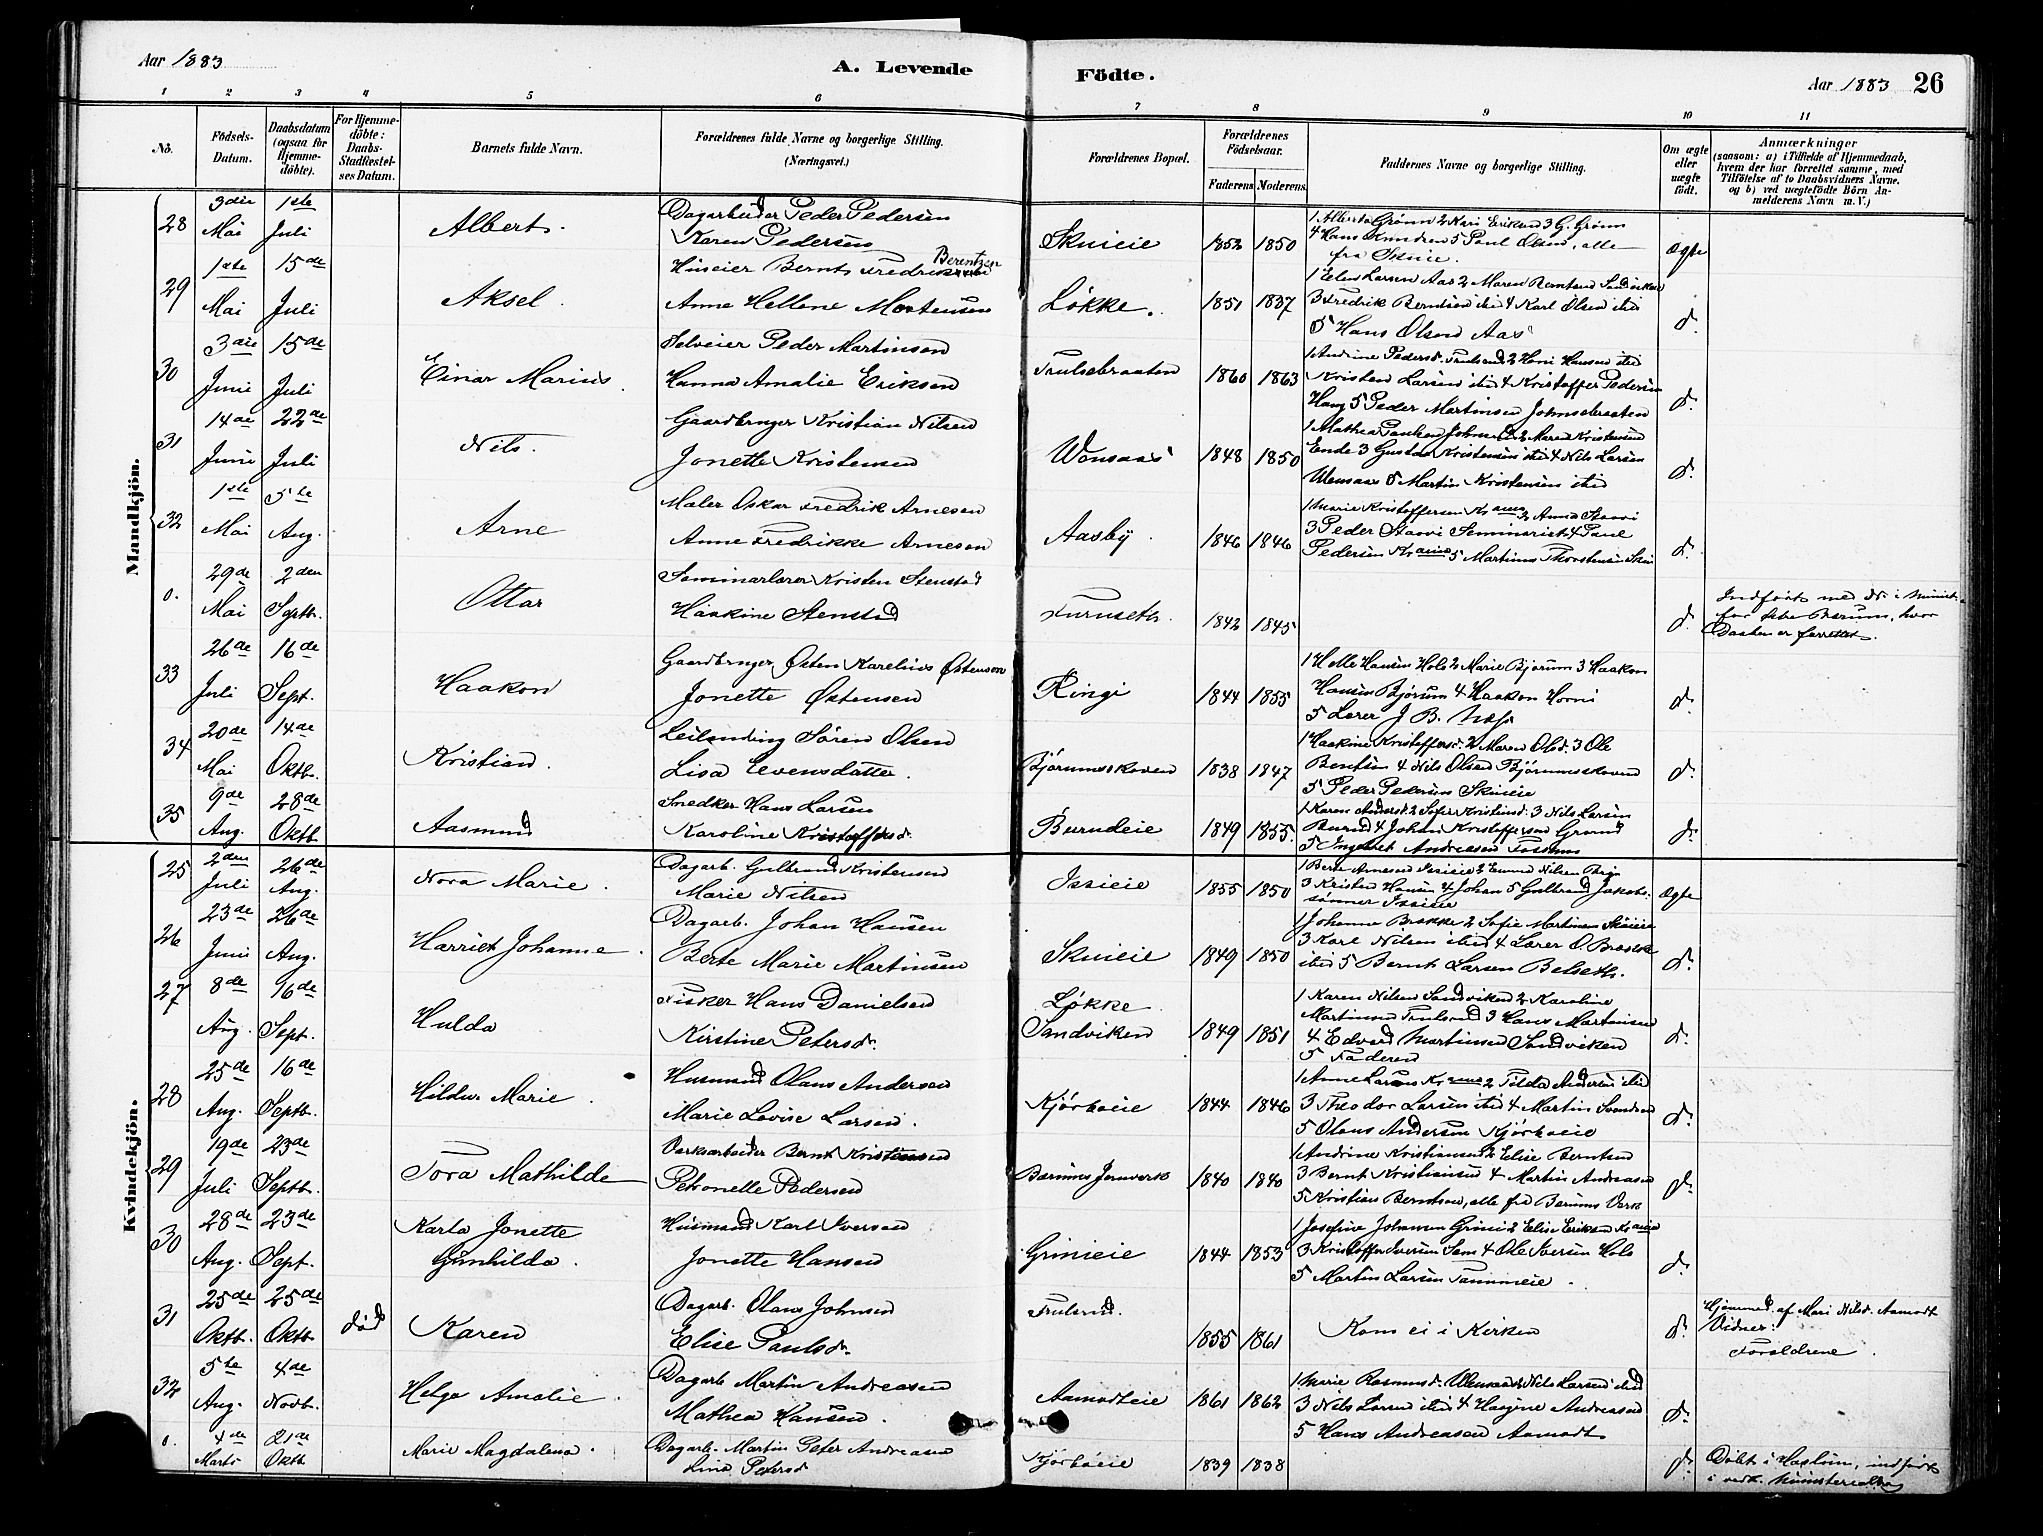 Aar 1883
A. Levende Födte.
Aar 1883 26
1 2 3 4 5 6 7 8 9 10 11
No. Födsels-Datum. Daabsdatum (ogsaa for Hjemme-döbte). For Hjemme-döbte: Daabs-Stadfæstel-ses Datum. Barnets fulde Navn. Forældrenes fulde Navne og borgerlige Stilling. (Næringsvei.) Forældrenes Bopæl. Forældrenes Födselsaar. Faderens. Moderens. Faddernes Navne og borgerlige Stilling. Om ægte eller uægte födt. Anmærkninger (saasom: a) i Tilfælde af Hjemmedaab, hvem der har forrettet samme, med Tilföielse af to Daabsvidners Navne, og b) ved uægtefödte Börn An-melderens Navn m.V.)
Mandkjön.
28 3die Mai 1ste Juli Albert. Dagarbeider Peder Pedersen
Karen Pedersen Skuieie 1852 1850 1 Alberta Grønn 2 Kari Eriksen 3 G. Grønn
4 Hans Knudsen 5 Paul Olsen, alle
fra Skuie. Ægte
29 1ste Mai 15de Juli Aksel. Huseier Bernt Fredriksen Berentzen
Anne Hellene Mortensen Løkke. 1851 1837 1 Elen Larsen Aas 2 Maren Berntsen Sandviken
3 Fredrik Berntsen ibid 4 Karl Olsen ibid
5 Hans Olsen Aas d.
30 3die Juni 15de Juli Einar Marius. Selveier Peder Martinsen
Hanna Amalie Eriksen Trulsebraaten 1860 1863 1 Andrine Pedersd. Trulsrud 2 Hansen ibid
Kristen Larsen ibid 4 Kristoffer Pedersen
Haug 5 Peder Martinsen Johnsebraaten d.
31 14de Juni 22de Juli Nils. Gaardbruger Kristian Nilsen
Jonette Kristensen Wensaas 1848 1850 1 Mathea 2 Maren Kristensen
Ende 3 Gustav Kristensen ibid 4 Nils Larsen
Wensaas 5 Martin Kristensen ibid d.
32 1ste Mai 5te Aug. Arne Maler Oskar Fredrik Arnesen
Anne Fredrikke Arnesen Aasby. 1846 1846 1 Marie Kristoffersen Kr.ania 2 Anna Staavi
3 Peder Staavi Seminarist 4 Paul
Pedersen Kr.ania 5 Martinus Thorstensen Skui d.
0. 29de Mai 2den Septb. Ottar Seminarlærer Kristen Stenstad
Haakine Stenstad Furuseth. 1842 1845 d. Indført med Nr i Minist.
for Østre Bærum, hvor
Daaben er forrettet.
33 26de Juli 16de Sept. Haakon Gaardbruger Østen Karelius Østensen
Jonette Østensen Ringi 1844 1855 1 Helle Hansen Hols 2 Marie Bjørum 3 Haakon
Hansen Bjørum 4 Haakon Horni
5 Lærer J. B. Næss d.
34 20de Mai 14de Oktb. Kristian. Leilending Søren Olsen
Lisa Evensdatter. Bjørumsskoven 1838 1847 1 Haakine Kristoffersd. 2 Maren Olsd. 3 Ole
Berntsen 4 Nils Olsen Bjørumsskoven
5 Peder Pedersen Skuieie d.
35 9de Aug. 28de Oktb Aasmund Snedker Hans Larsen
Karoline Kristoffersd. Burudeie 1849 1855. 1 Karen Andersd. 2 Sofie Kristiansd. 3 Nils Larsen
Burud 4 Johan Kristoffersen Grønn
5 Ingebret Andreasen Fossum d.
Kvindekjön.
25 2den Juli 26de Aug. Nora Marie. Dagarb. Gulbrand Kristensen
Marie Nilsen Issieie 1855 1850 1 Berte Arnesen Issieie 2 Emma Nilsen
3 Kristen Hansen 4 Johan 5 Gulbrand Jakobs-
sønner Issieie Ægte
26 23de Juni 26de Aug. Harriet Johanne. Dagarb. Johan Hansen
Berte Marie Martinsen Skuieie 1849 1850 1 Johanne Brække 2 Sofie Martinsen Skuieie
3 Karl Nilsen ibid 4 Lærer O. Brække
ibid 5 Bernt Larsen Belseth. d.
27 8de Aug. 16de Sept. Hulda Fisker Hans Danielsen
Kirstine Petersd. Løkke
Sandviken 1849 1851 1 Karen Nilsen Sandviken 2 Karoline
Martinsen Trulsrud 3 Hans Martinsen
4 Edvard Martinsen Sandviken
5 Faderen d.
28 25de Aug. 16de Septb. Hildur Marie. Husmand Olaus Andersen
Marie Lovise Larsen. Kjørboeie 1844 1846 1 Anne Larsen Kr.ania 2 Tilda Andersen ibid
3 Theodor Larsen ibid 4 Martin Svendsen
5 Olaus Andersen Kjørboeie d.
29 19de Juli 23de Septb. Tora Mathilde Verksarbeider Bernt Kristiansen
Petronelle Pedersen Bærums Jernverk 1840 1840 1 Andrine Kristiansen 2 Elise Berntsen
3 Bernt Kristiansen 4 Martin Andreasen
5 Kristian Berntsen, alle fra Bærums Værk d.
30 28de Aug. 23de Sept. Karla Jonette
Gunhilda. Husmand Karl Iversen
Jonette Hansen Grinieie 1844 1853 1 Josefine Johansen Grini 2 Elise Eriksen Kr.ania
3 Kristoffer Iversen Sem 4 Ole Iversen Hols
5 Martin Larsen Tanumeie. d.
31 25de Oktb. 25de Oktb. død Karen Dagarb. Olaus Johnsen
Elise Paulsd. Trulsrud. 1855 1861 Kom ei i Kirken d. Hjemmed. af Mari Nilsd. Aamodt
Vidner:
Forældrene.
32 5te Aug. 4de Novb. Helga Amalie. Dagarb Martin Andreasen
Mathea Hansen. Aamodteie 1861 1862 1 Marie Rasmusd. Wensaas 2 Nils Larsen ibid
3 Nils Larsen ibid 4 Hagine Andreasen
5 Hans Andreasen Aamodt d.
0. 4de Marts 21de Oktb Marie Magdalena. Dagarb. Martin Peter Andreasen
Lina Petersd Kjørboeie 1839 1838 d. Døbt i Haslum, indført
i vedk. Ministerialbog